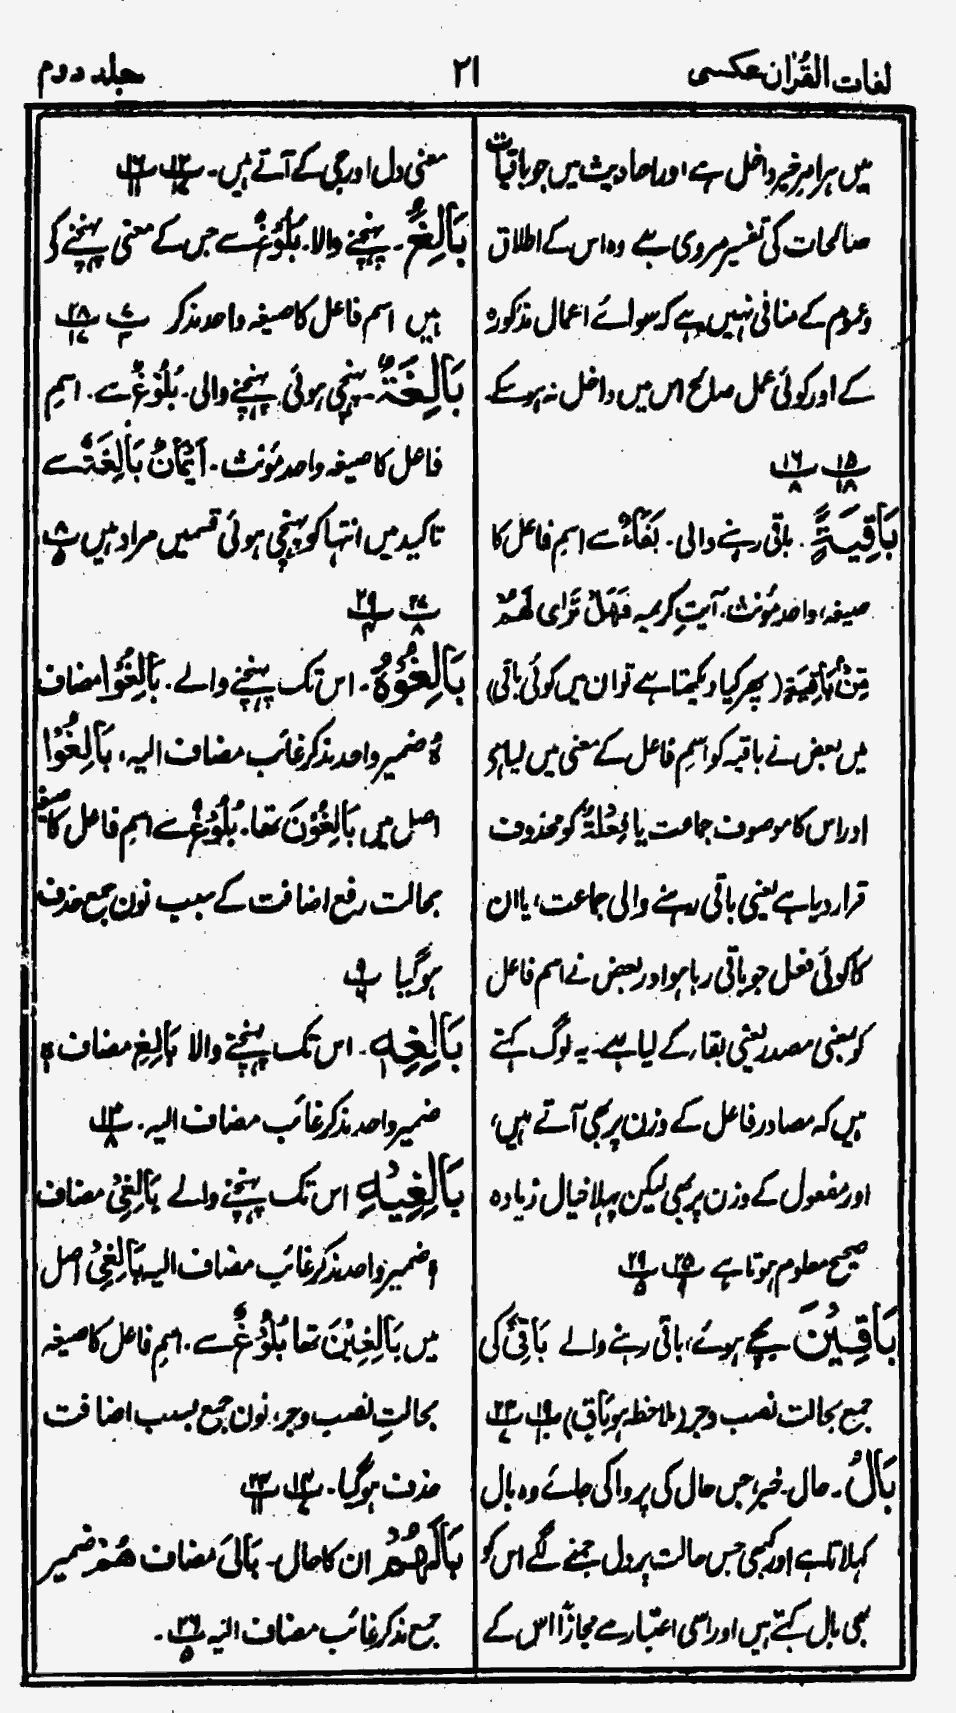 لغات القرآن عکسی
۲۱
جلد دوم
میں ہر امر خیر داخل ہے اور احادیث میں جو باقیات
صالحات کی تفسیر مروی ہے وہ اس کے اطلاق
و عموم کے منافی نہیں ہے کہ سوائے اعمال مذکورہ
کے اور کوئی عمل صالح اس میں داخل نہ ہو سکے
۱۵ ۱۶
۱۸ ۸
بَاقِيَةٍ ۔ باقی رہنے والی ۔ بَقَاءٌ سے اسم فاعل کا
صیغہ، واحد مؤنث ۔ آیتِ کریمہ فَهَلْ تَرٰى لَهُمْ
مِنْ بَاقِيَةٍ (پھر کیا دیکھتا ہے تو ان میں کوئی باقی)
میں بعض نے باقیہ کو اسم فاعل کے معنی میں لیا ہے
اور اس کا موصوف جماعت یا فِعْلَةٌ کو محذوف
قرار دیا ہے یعنی باقی رہنے والی جماعت، یا ان
کا کوئی فعل جو باقی رہا ہو اور بعض نے اسم فاعل
کو بمعنی مصدر یعنی بقاء کے لیا ہے۔ یہ لوگ کہتے
ہیں کہ مصادر فاعل کے وزن پر بھی آتے ہیں،
اور مفعول کے وزن پر بھی لیکن پہلا خیال زیادہ
صحیح معلوم ہوتا ہے ۲۵ ۲۹
۵
بَاقِيْنَ بچے ہوئے، باقی رہنے والے بَاقِیْ کی
جمع بحالت نصب و جر (ملاحظہ ہو بَاقٍ) ۱۹ ۲۳
۱۰ ۷
بَالُ ۔ حال ۔ خیر، جس حال کی پروا کی جائے وہ بال
کہلاتا ہے اور کبھی جس حالت پر دل جمنے لگے اس کو
بھی بال کہتے ہیں اور اسی اعتبار سے مجازاً اس کے
معنی دل اور جی کے آتے ہیں۔ ۱۲ ۱۶
۱۱
بَالِغٌ ۔ پہنچنے والا ۔ بُلُوْغٌ سے جس کے معنی پہنچنے کے
ہیں اسم فاعل کا صیغہ واحد مذکر ۲۸
۱۷
بَالِغَةٌ ۔ پہنچی ہوئی پہنچنے والی ۔ بُلُوْغٌ سے ۔ اسم
فاعل کا صیغہ واحد مؤنث ۔ اَيْمَانٌ بَالِغَةٌ سے
تاکید میں انتہا کو پہنچی ہوئی قسمیں مراد ہیں ۸
۵
۲۷ ۲۹
۸ ۴
بَالِغُوْهُ ۔ اس تک پہنچنے والے ۔ بَالِغُوْا مضاف
هُ ضمیر واحد مذکر غائب مضاف الیہ، بَالِغُوْا
اصل میں بَالِغُوْنَ تھا ۔ بُلُوْغٌ سے اسم فاعل کا صیغہ
بحالت رفع اضافت کے سبب نون جمع حذف
ہو گیا ۹
۶
بَالِغِهٖ ۔ اس تک پہنچنے والا بَالِغِ مضاف ہٖ
ضمیر واحد مذکر غائب مضاف الیہ ۔ ۱۳
۸
بَالِغِيْهِ اس تک پہنچنے والے بَالِغِیْ مضاف
ہِ ضمیر واحد مذکر غائب مضاف الیہ بَالِغِیْ اصل
میں بَالِغِيْنَ تھا بُلُوْغٌ سے ۔ اسم فاعل کا صیغہ
بحالتِ نصب و جر، نون جمع بسبب اضافت
حذف ہو گیا ۔ ۱۴ ۲۴
۷ ۱۱
بَالَهُمْ ان کا حال ۔ بَالَ مضاف هُمْ ضمیر
جمع مذکر غائب مضاف الیہ ۲۶ ۔
۵